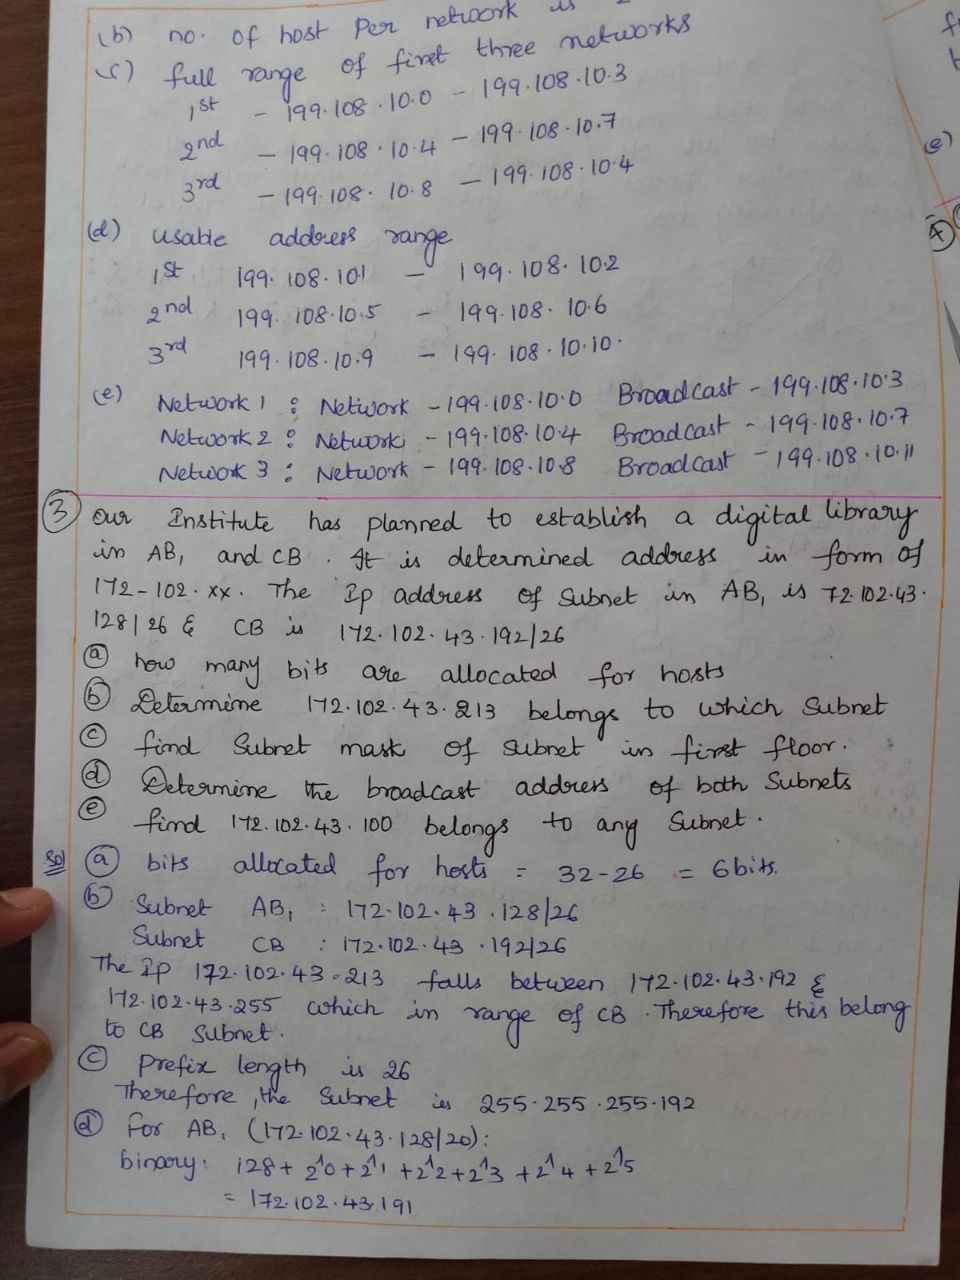 (b) no. of host Per network is
(c) full range of first three networks
1st - 199.108.10.0 - 199.108.10.3
2nd - 199.108.10.4 - 199.108.10.7
3rd - 199.108.10.8 - 199.108.10.4
(d) usable address range
1st 199.108.10.1 - 199.108.10.2
2nd 199.108.10.5 - 199.108.10.6
3rd 199.108.10.9 - 199.108.10.10.
(e) Network 1 : Network - 199.108.10.0 Broadcast - 199.108.10.3
Network 2 : Network - 199.108.10.4 Broadcast - 199.108.10.7
Network 3 : Network - 199.108.10.8 Broadcast - 199.108.10.11
(3) Our Institute has planned to establish a digital library
in AB1 and CB. It is determined address in form of
172-102.xx. The Ip address of Subnet in AB1 is 72.102.43.
128/26 & CB is 172.102.43.192/26
(a) how many bits are allocated for hosts
(b) Determine 172.102.43.213 belongs to which Subnet
(c) find Subnet mask of Subnet in first floor.
(d) Determine the broadcast address of both Subnets
(e) find 172.102.43.100 belongs to any Subnet.
Sol (a) bits allocated for hosts = 32-26 = 6 bits.
(b) Subnet AB1 : 172.102.43.128/26
Subnet CB : 172.102.43.192/26
The Ip 172.102.43.213 falls between 172.102.43.192 &
172.102.43.255 which in range of CB. Therefore this belong
to CB Subnet.
(c) Prefix length is 26
Therefore, the Subnet is 255.255.255.192
(d) For AB1 (172.102.43.128/20):
binary: 128+2^0+2^1+2^2+2^3+2^4+2^5
= 172.102.43.191
(e)
4